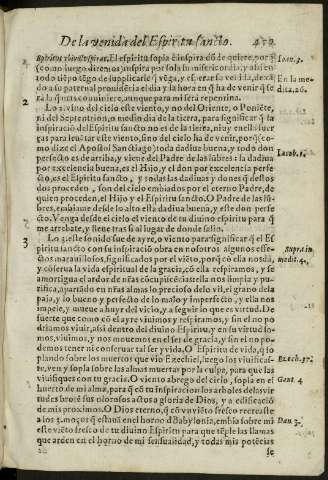 De la venida del Espiritu sancto. 459
Spiritus vbi vult spirat. El espiritu sopla è inspira dõ de quiere, porq̃
(como luego diremos) inspira por sola su misericordia, y assi en
todo tiẽpo tẽgo de suplicarle q̃ vẽga, y esperar su venida, dexã
do a su paternal prouidẽcia el dia y la hora en q̃ ha de venir q̃ se
rà la q̃ mas conuiniere, aunque para mi serà repentina.
Lo 2. vino este viento no del Oriente, o Poniẽte,
ni del Septentrion, o medio dia de la tierra, para significar q̃ la
inspiraciõ del Espiritu sancto no es de la tierra, ni ay en ella fuer
ças para leuantar este viento, sino del cielo ha de venir, porq̃ co-
mo dize el Apostol Sanctiago: toda dadiua buena, y todo don
perfecto es de arriba, y viene del Padre de las lũbres: la dadiua
por excelencia buena, es el Hijo, y el don por excelencia perfe-
cto, es el Espiritu sancto, y todas las dadiuas y dones q̃ destos
dos proceden, son del cielo embiados por el eterno Padre, de
quien proceden, el Hijo y el Espiritu sancto. O Padre de las lũ-
bres, embiame desde lo alto essa dadiua buena, y este don perfe
cto. Venga desde el cielo el viento de tu diuino espiritu para q̃
me arrebate, y lleue tras si al lugar de donde salio.
Lo 3. este sonido fue de ayre, o viento para significar q̃ el Es
piritu sancto con su inspiraciõ obra en nosotros algunos effe-
ctos marauillosos, significados por el viẽto, porq̃ cõ ella nos dà,
y cõserua la vida espiritual de la gracia, cõ ella respiramos, y se
amortigua el ardor de nr̃as cõcupiscẽcias: ella nos limpia y pu-
rifica, apartãdo en nr̃as almas lo precioso de lo vil, el grano de la
paja, y lo bueno y perfecto de lo malo y imperfecto, y ella nos
impele, y mueue a huyr del vicio, y a seguir lo que es virtud. De
suerte que como cõ el ayre viuimos y respiramos, y sin el no po
driamos viuir, assi dentro del diuino Espiritu, y en su virtud so-
mos, viuimos, y nos mouemos en el ser de gracia, y sin el no po-
demos tener ni conseruar tal ser y vida. O Espiritu de vida, q̃ so
plando sobre los muertos que viò Ezechiel, luego los viuifica-
ste, ven y sopla sobre las almas muertas por la culpa, para que las
viuifiques con tu gracia. O viento abrego del cielo, sopla en el
huerto de mi alma, para q̃ cõ tu inspiracion los arboles de las vir
tudes brotẽ sus olorosos actos a gloria de Dios, y a edificaciõ
de mis proximos. O Dios eterno, q̃ cõ vn viẽto fresco recreaste
a los 3. moços q̃ estauã en el horno d̃ Babylonia, embia sobre mi
este viẽto fresco de tu diuino Espiritu para que tẽple las llamas
que arden en el horno de mi sensualidad, y todas mis potẽcias
se
Ioan. 3.
En la me
dita. 26.
2
Iacob. 1.
3
Supra in
medit. 4.
Ezech. 37.
Cant. 4
Dan. 3.